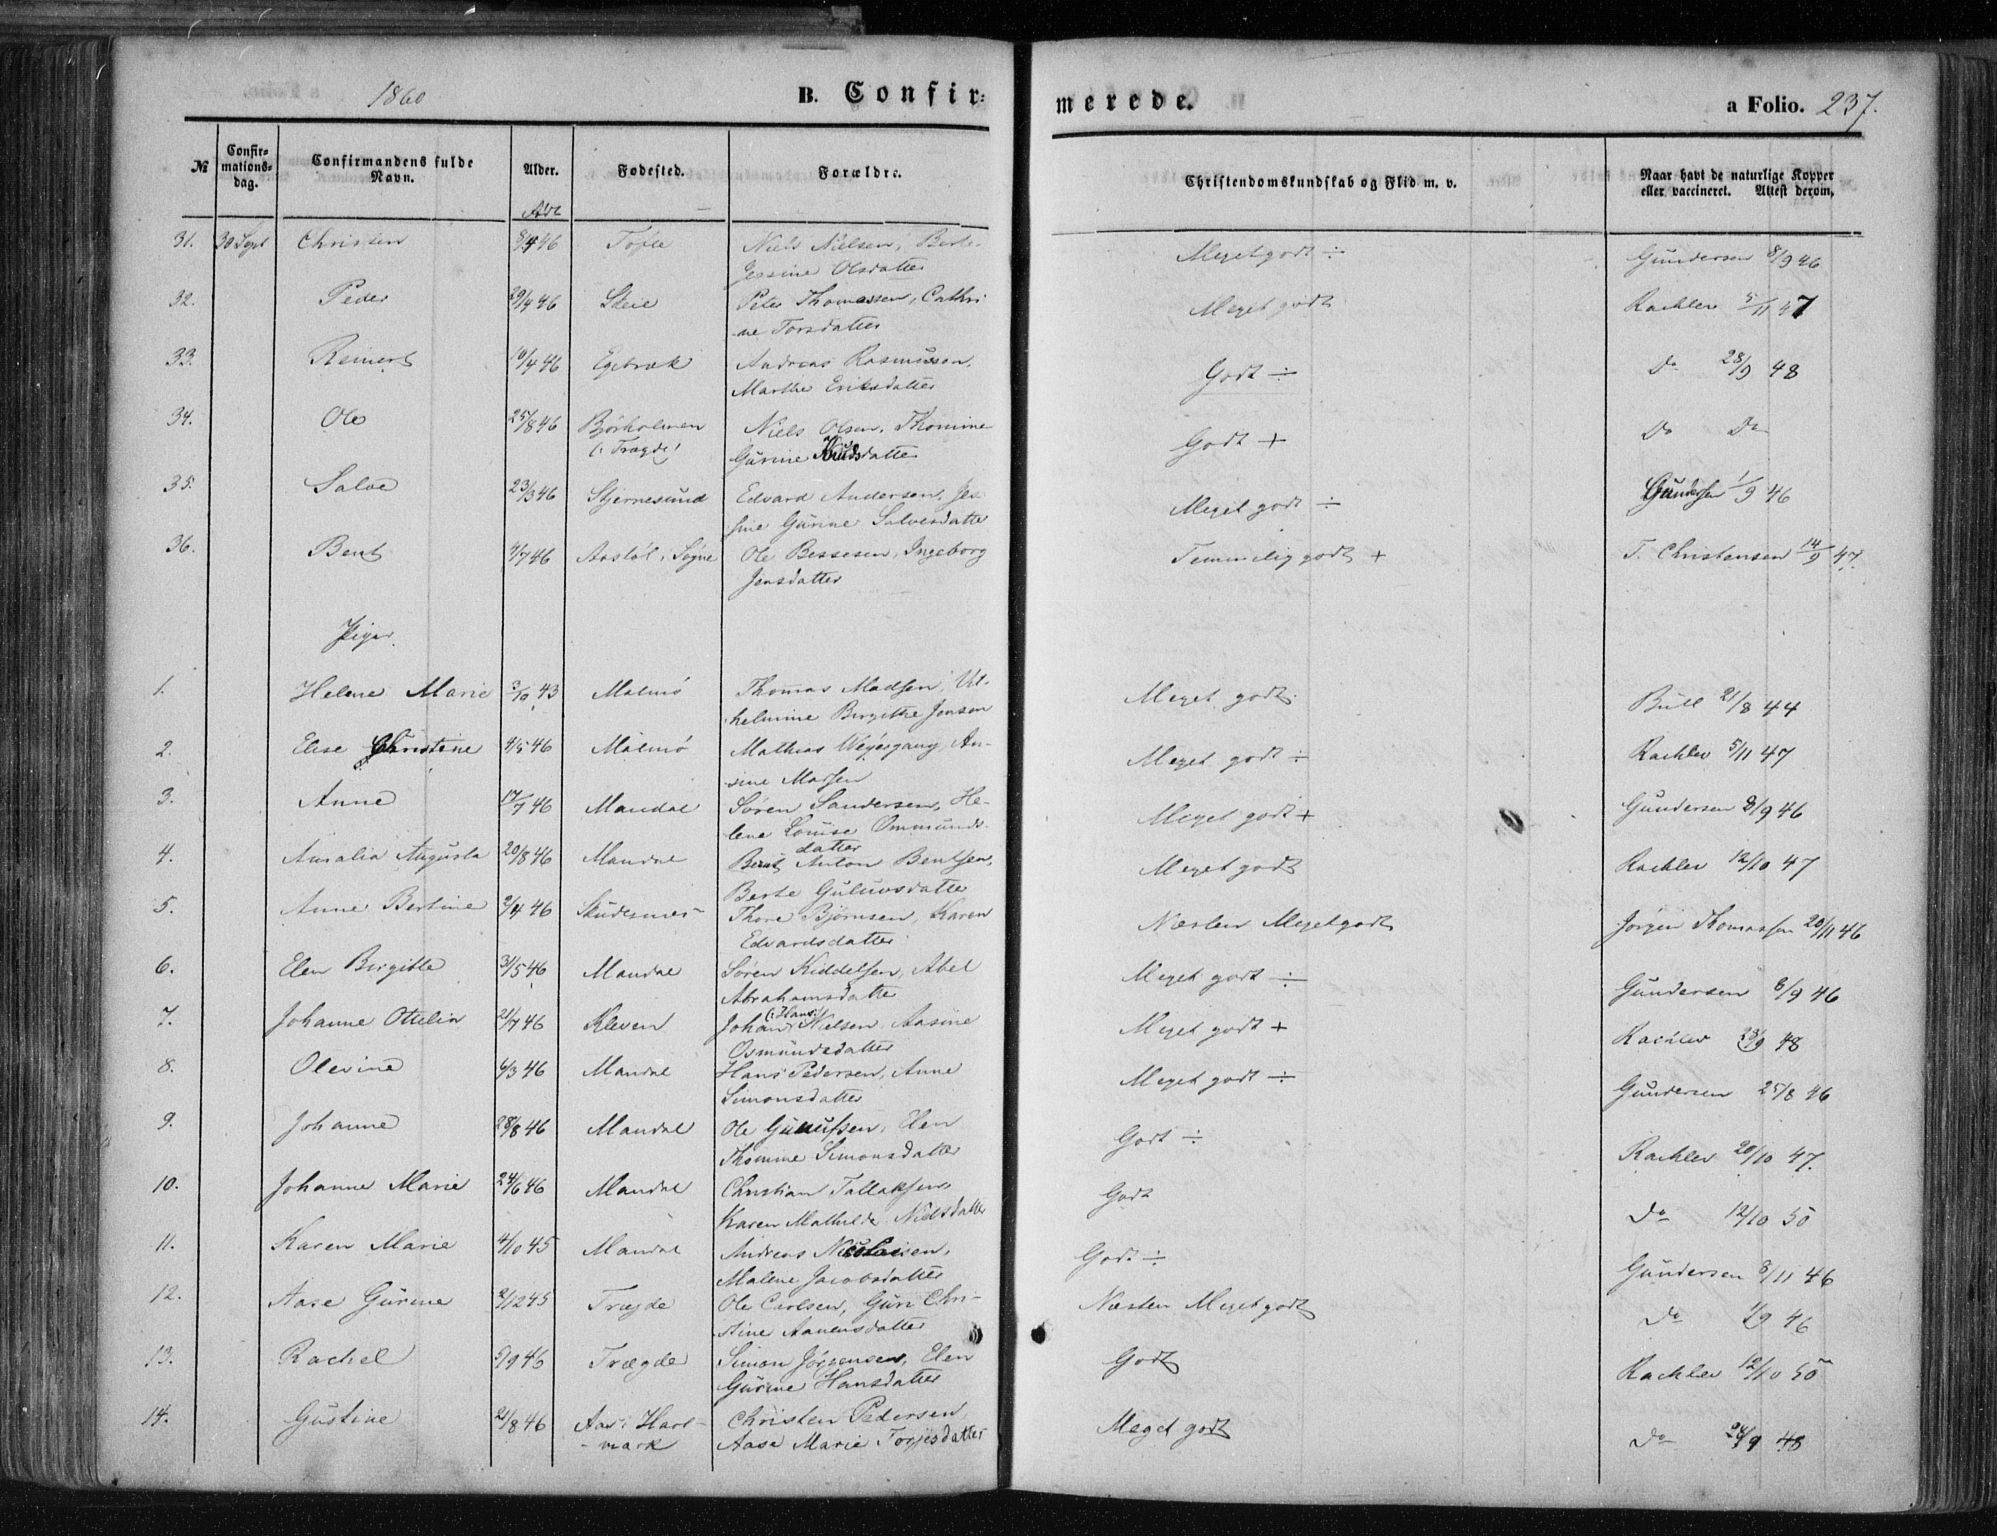 1860 B. Confirmerede. a Folio. 237.
№ Confirmationsdag. Confirmandens fulde Navn. Alder. Fødested. Forældre. Christendomskundskab og Flid m. v. Naar havt de naturlige Kopper eller vaccineret. Attest derom,
31. 30 Sept Christen 8/4 46 Tofte Niels Nielsen, Berte Meget godt ÷ Gundersen 8/9 46
Jessine Olsdatter
32. Peder 29/4 46 Skeie Peter Thomassen, Cathri Meget godt Rachlev 5/11 47
ne Torsdatter
33. Reinert 10/4 46 Egebræk Andreas Rasmussen, Godt ÷ Do 28/9 48
Marthe Eriksdatter
34. Ole 25/8 46 Bjørholmen Niels Olsen, Thomine Godt + Do Do
(: Trægde) Gurine Knudsdatter
35. Salve 23/3 46 Stjernesund Edvard Andersen, Jes Meget godt ÷ Gundersen 1/9 46
sine Gurine Salvesdatter
36. Bent 4/7 46 Aasløl i Søgne Ole Bessesen, Ingeborg Temmelig godt + T. Christensen 14/9 47.
Jensdatter
Piger.
1. Helene Marie 3/10 43 Malmø Thomas Madsen, Vil- Meget godt. Bull 21/8 44
helmine Birgithe Jensen
2. Elise Christine 4/5 46 Malmø Mathias Weyergang, An- Meget godt ÷ Rachlev 5/11 47
sine Madsen
3. Anne 17/7 46 Mandal Søren Sandersen, He- Meget godt + Gundersen 8/9 46
lene Louise Ommunds-
datter
4. Amalia Augusta 20/8 46 Mandal Bernt Anton Bentsen, Meget godt Rachlev 12/10 47
Berte Guluvsdatter
5. Anne Bertine 2/4 46 Skudesnes- Thore Bjørnsen, Karen Næsten Meget godt Jørgen Thomassen 20/11 46
Edvardsdatter
6. Elen Birgitte 31/5 46 Mandal Søren Kiddelsen, Abel Meget godt ÷ Gundersen 8/9 46
Abrahamsdatter
(: Hans)
7. Johanne Ottelia 21/7 46 Kleven Johan Nielsen, Aasine Meget godt + Rachlev 28/9 48
Osmundsdatter
8. Olevine 6/3 46 Mandal Hans Pedersen, Anne Meget godt ÷ Gundersen 25/8 46
Simonsdatter
9. Johanne 28/8 46 Mandal Ole Gunufsen, Elen Godt ÷ Rachlev 20/10 47.
Thomine Simonsdatter
10. Johanne Marie 24/6 46 Mandal Christian Tallaksen, Godt Do 12/10 50
Karen Mathilde Nielsdatter
11. Karen Marie 4/10 45 Mandal Andreas Nicolaisen, Godt ÷ Gundersen 3/11 46
Malene Jacobsdatter
12. Aase Gurine 2/12 45 Trægde Ole Carlsen, Guri Chri- Næsten Meget godt Do 1/9 46
stine Aanensdatter
13. Rachel 5/9 46 Trægde Simon Jørgensen, Elen Godt Rachlev 12/10 50
Gurine Hansdatter
14. Gustine 21/8 46 Aas i Hart- Christen Pedersen, Meget godt Do 28/9 48
-mark Aase Marie Torjesdatter